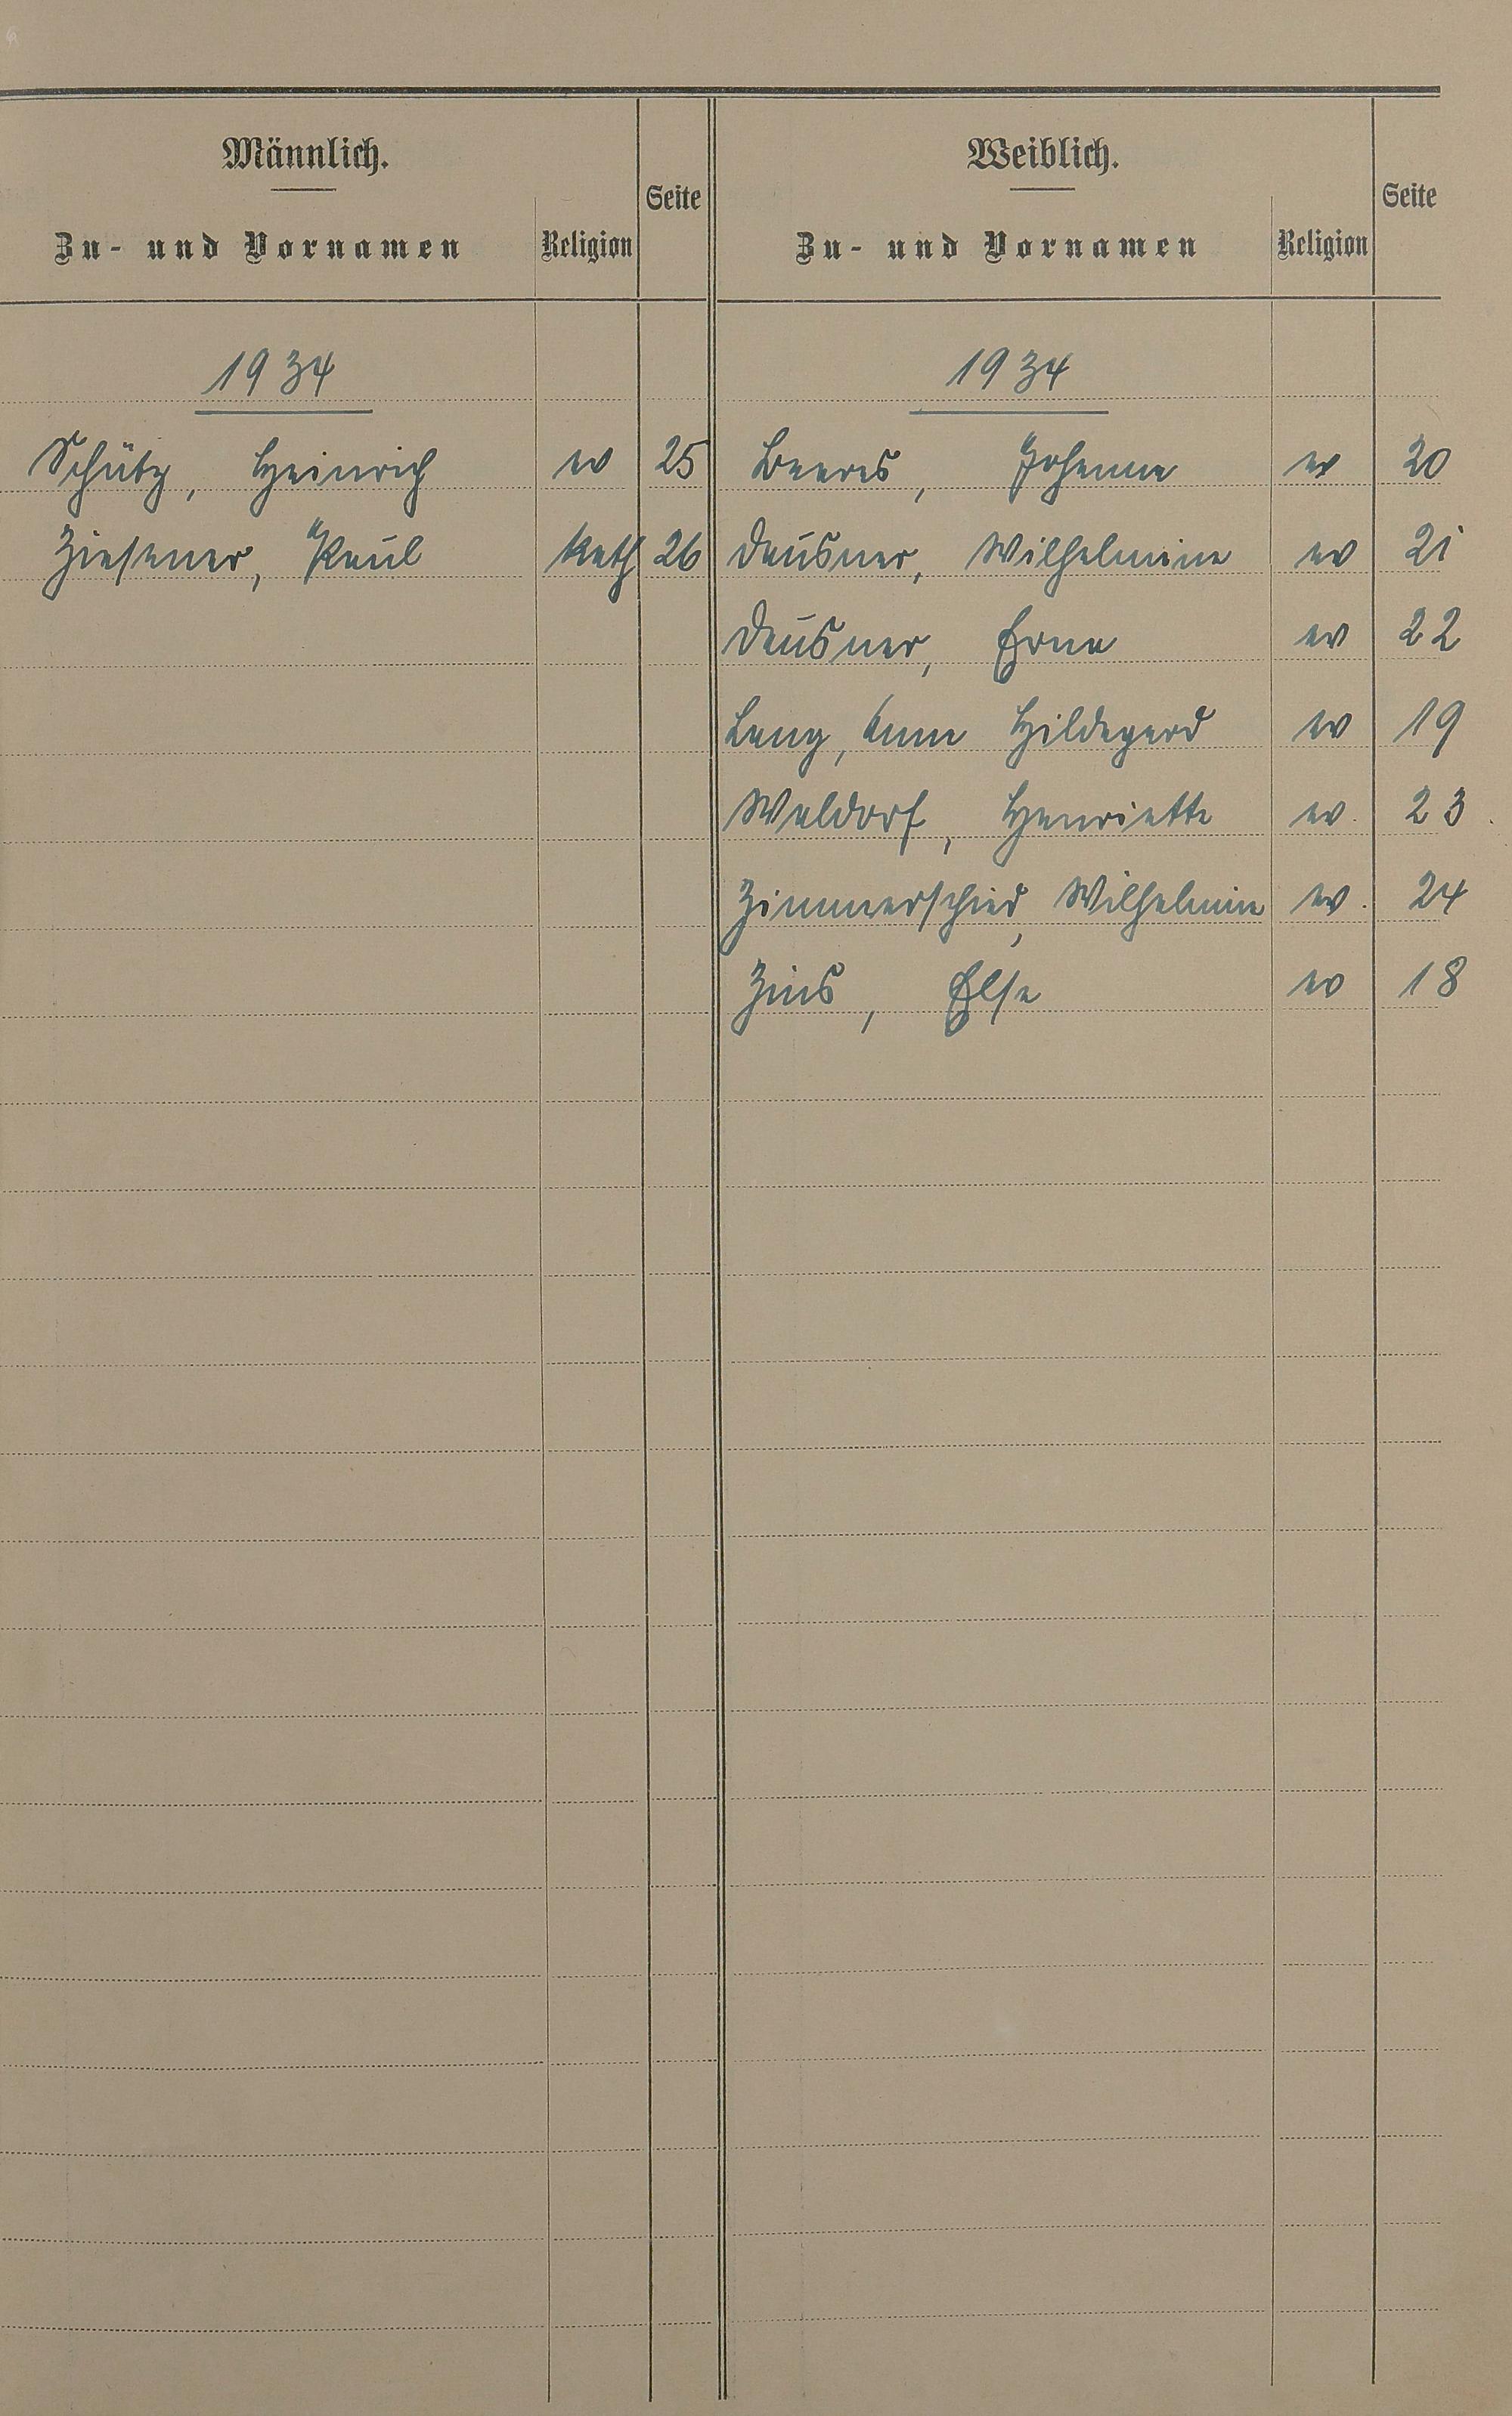 Männlich.
Zu- und Vornamen
Religion
Seite
1934
Schütz, Heinrich ev 25
Ziesener, Paul kath 26
Weiblich.
Zu- und Vornamen
Religion
Seite
1934
Beeres, Johanna ev 20
Deusner, Wilhelmine ev 21
Deusner, Erna ev 22
Lang, Anna Hildegard ev 19
Waldorf, Henriette ev. 23.
Zimmerschied, Wilhelmine ev. 24
Zins, Else ev 18